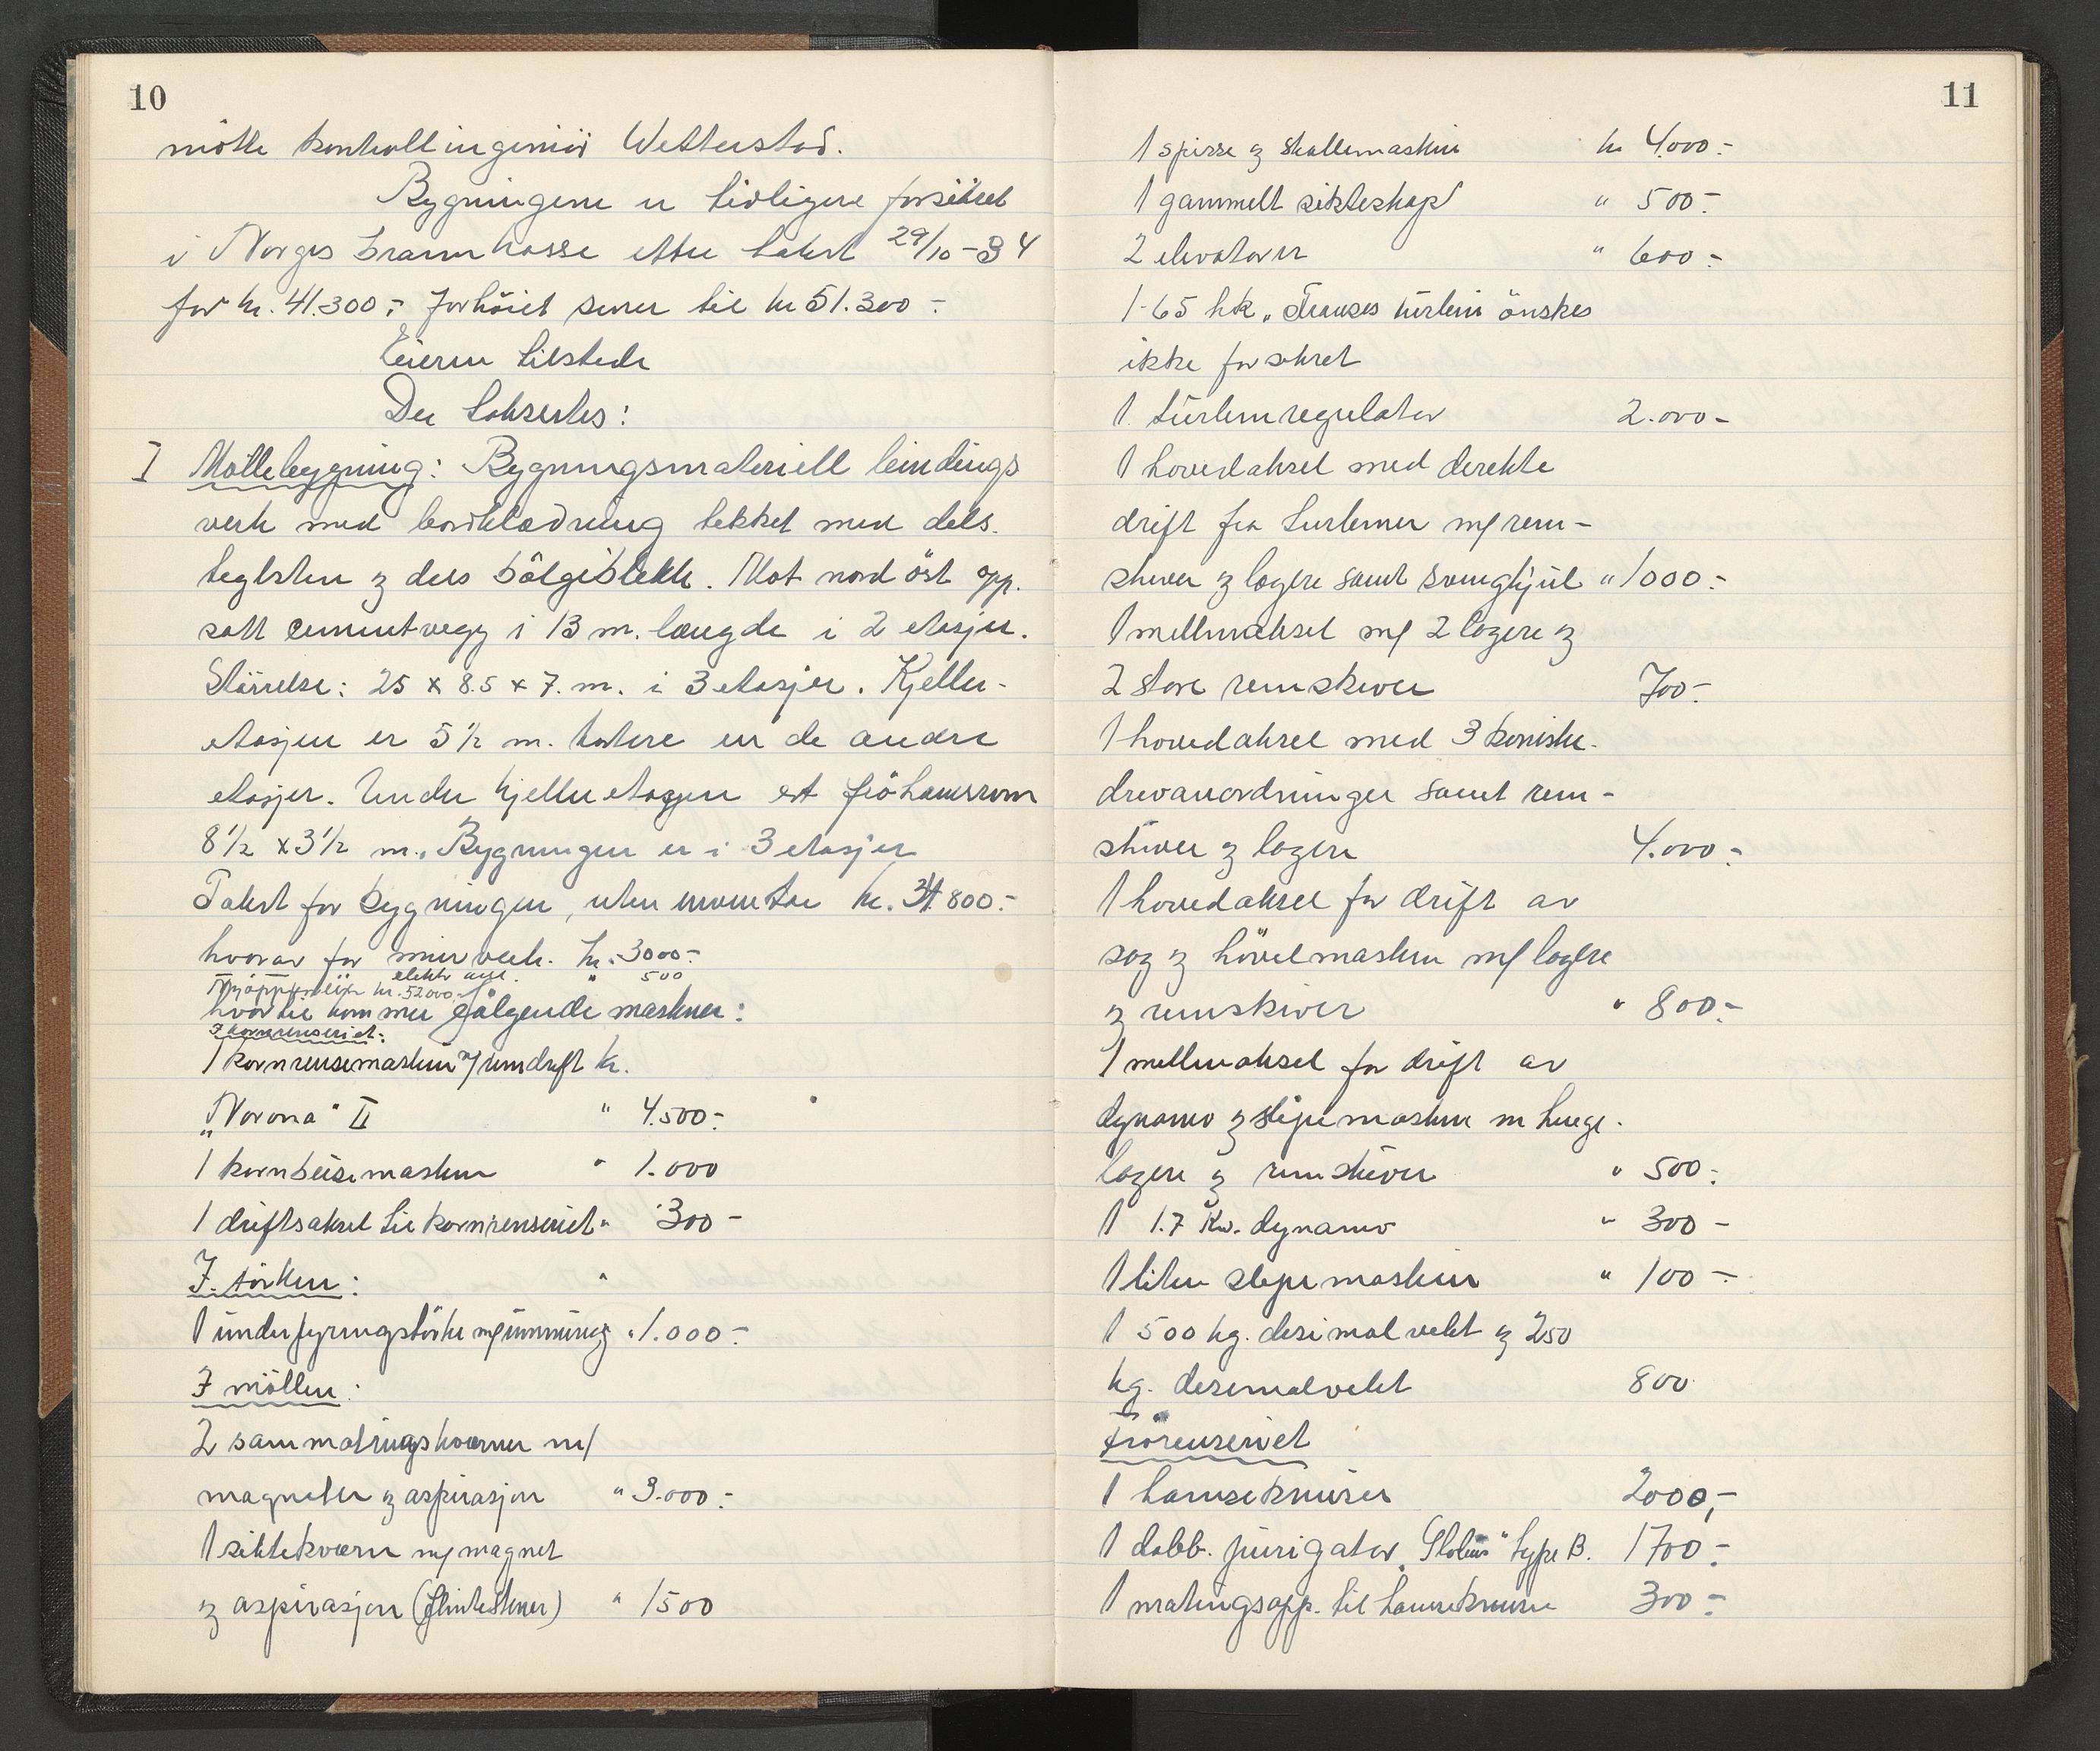 10
mötte kontrollingeniör Wetterstad.
Bygningene er tidligere forsikret
i Norges brannkasse etter takst 29/10-34
for kr. 41.300,- forhöiet senere til kr 51.300-
Eieren tilstede
Der taksertes:
I Möllebygning: Bygningsmateriell bindings
verk med bordklædning tekket med dels
teglsten og dels bölgeblekk. Mot nord öst opp.
satt cementvegg i 13 m. længde i 2 etasjer.
Störrelse: 25 x 8.5 x 7. m. i 3 etasjer. Kjeller-
etasjen er 5 1/2 m. kortere en de andre
etasjer. Under kjelleretasjen et fröhamsrom
8 1/2 x 3 1/2 m. Bygningen er i 3 etasjer
Takst for bygningen, uten inventar kr. 34.800.-
hvorav for murverk. kr. 3000.-
elektr. " 500
kr. 52000.-
hvortil kommer följgende maskiner:
I kornrenseriet:
1 kornrensemaskin m/ remdrift kr.
"Norona" II " 4.500.-
1 kornbeisemaskin " 1.000
1 driftsaksel til kornrenseriet " 300-
I törken:
1 underfyringstörke m/ innmuring " 1.000.-
I möllen:
2 sammalingskværner m/
magneter og aspirasjon " 3.000.-
1 siktekværn m/ magnet
og aspirasjon (flintestener) " 1500
11
1 spisse og skallemaskin kr 4.000.-
1 gammelt sikteskap " 500.-
2 elevatorer " 600-
1-65 hk. "Franses turbin önskes
ikke forsikret
1 turbinregulator 2.000-
1 hovedaksel med direkte
drift fra turbinen m/ rem-
skiver og lagere samt svinghjul " 1000.-
1 mellemaksel m/ 2 lagere og
2 store remskiver 700.-
1 hovedaksel med 3 koniske
drevanordninger samt rem-
skiver og lagere 4.000.-
1 hovedaksel for drift av
sag og hövelmaskin m/ lagere
og remskiver " 800.-
1 mellemaksel for drift av
dynamo og slipemaskin m henge-
lagere og remskiver " 500.-
1 1.7 Kw. dynamo " 300-
1 liten slipemaskin " 100-
1 500 kg. desimalvekt og 250
kg. desimalvekt 800
Frörenseriet
1 hamseknuser 2000,-
1 dobb. purigator "Globus" type B. 1700.-
1 matingsapp. til hamseknuser 300.-